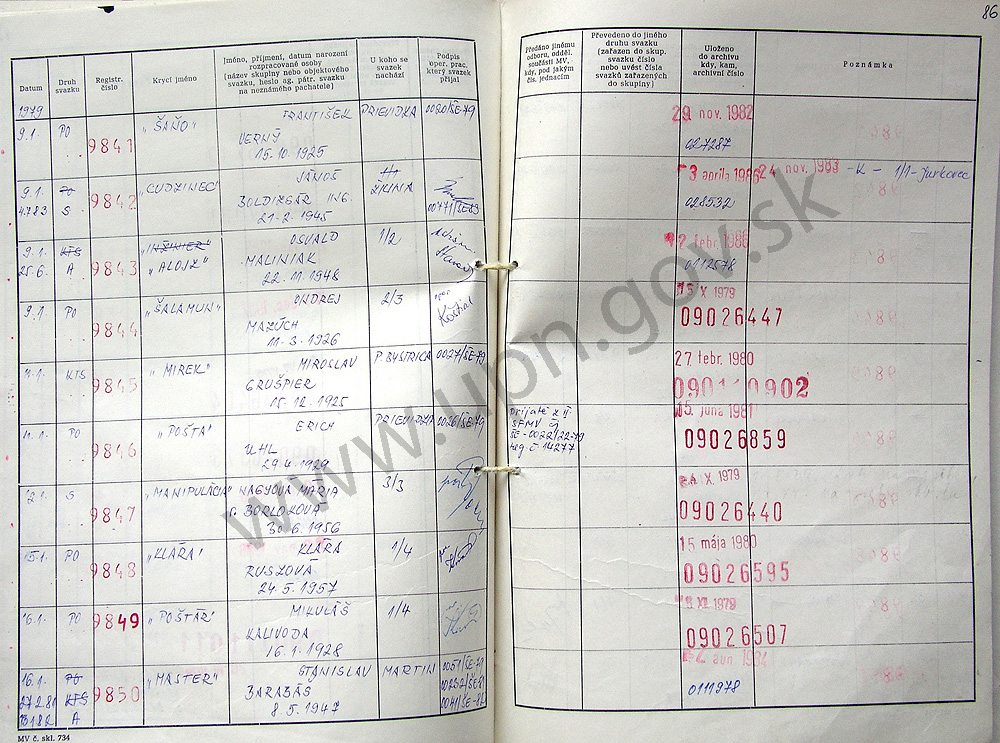 86
Datum
Druh svazku
Registr. číslo
Krycí jméno
Jméno, příjmení, datum narození
rozpracované osoby
(název skupiny nebo objektového
svazku, heslo ag. pátr. svazku
na neznámého pachatele)
U koho se
svazek
nachází
Podpis
oper. prac.
který svazek
přijal
Předáno jinému
odboru, odděl.
součásti MV,
kdy, pod jakým
čís. jednacím
Převedeno do jiného
druhu svazku
(zařazen do skup.
svazku číslo
nebo uvést čísla
svazků zařazených
do skupiny)
Uloženo
do archivu
kdy, kam,
archivní číslo
Poznámka
1979
9.1. PO 9841 „ŠAŇO" FRANTIŠEK PRIEVIDZA 0020/ŠE-79 29 nov. 1982
VERNÝ 027287
15.10.1925
9.1. PO 9842 „CUDZINEC" JÁNOŠ ŽILINA 3 apríla 1986 24 nov. 1983 -K- 1/1-Jurkovec
4.7.83 S BOLDIZSÁR ING. 00771/ŠE-83 028532
21.2.1945
9.1. KTS 9843 „INŽINIER" OSVALD 1/2 febr. 1986
25.6. A „ALOJZ" MALINIAK 0112578
22.11.1948
9.1. PO 9844 „ŠALAMUN" ONDREJ 2/3 X 1979
MAZÚCH 09026447
11.3.1926
11.1. KTS 9845 „MIREK" MIROSLAV P. BYSTRICA 0027/ŠE-79 27 febr. 1980
GRUŠPIER
15.12.1925
11.1. PO 9846 „POŠTA" ERICH PRIEVIDZA 0026/ŠE-79 prijaté z II. 15. júna 1981
UHL SFMV čj 09026859
29.4.1929 ŠE-0022/22-79
reg. č 14277
12.1. S 9847 „MANIPULÁCIA" NAGYOVÁ MÁRIA 3/3 X 1979
r. BORLOKOVÁ 09026440
30.6.1956
15.1. PO 9848 „KLÁRA" KLÁRA 1/4 15 mája 1980
RUSZOVÁ 09026595
24.5.1957
16.1. PO 9849 „POŠTÁR" MIKULÁŠ 1/4 XI 1979
KALIVODA 09026507
16.1.1928
16.1. PO 9850 „MASTER" STANISLAV MARTIN 0051/ŠE-79 1984
27.2.81 KTS BARABÁS 00232/ŠE-81 0111978
A 8.5.1947 0041/ŠE-82
MV č. skl. 734
www.upn.gov.sk